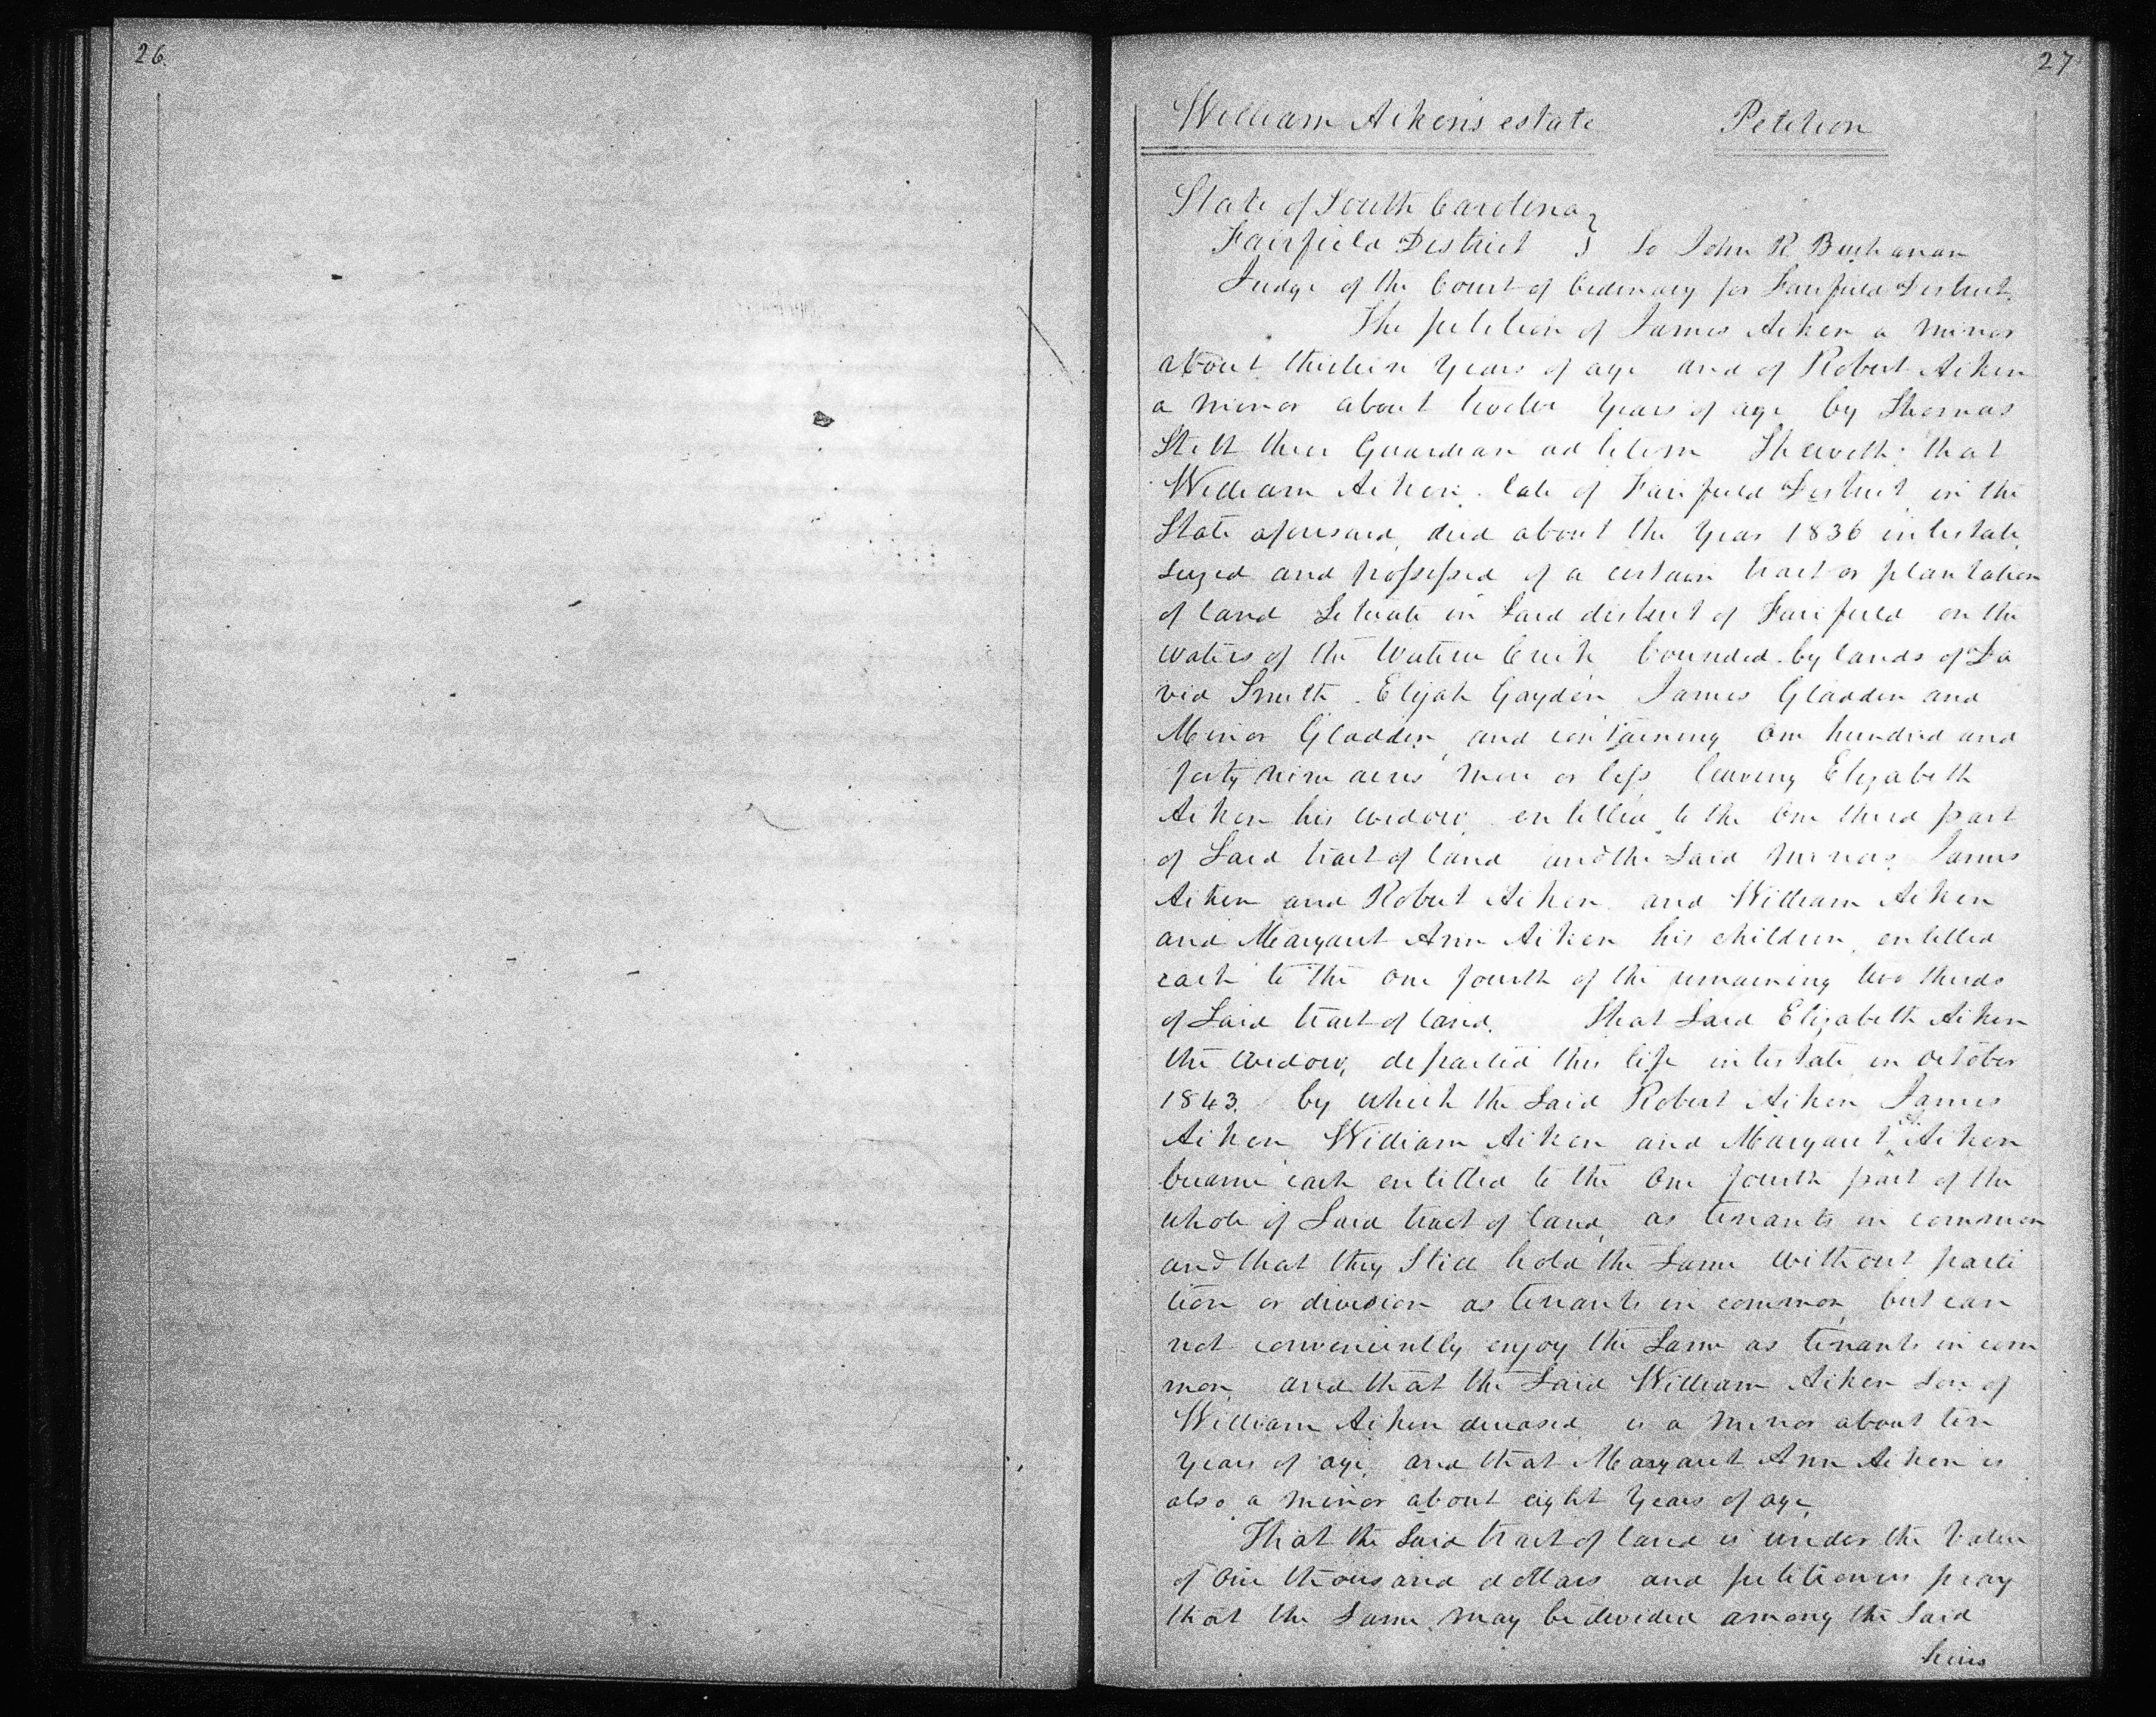 26.
27
William Aiken's estate Petition
State of South Carolina }
Fairfield District } To John R Buchanan
Judge of the Court of Ordinary for Fairfield District.
The petition of James Aiken a minor
about thirteen years of age and of Robert Aiken
a minor about twelve years of age by Thomas
Stitt their Guardian ad litem Sheweth that
William Aiken late of Fairfield District in the
State aforesaid, died about the year 1836 intestate
Seized and possessed of a certain tract or plantation
of land Situate in Said district of Fairfield on the
waters of the Wateree Creek bounded by lands of Da
vid Smith Elijah Gayden James Gladden and
Minor Gladden, and containing One hundred and
forty nine acres more or less, leaving Elizabeth
Aiken his widow, entitled to the One third part
of Said tract of land and the Said minors James
Aiken and Robert Aiken and William Aiken
and Margaret Ann Aiken his children entitled
each to the One fourth of the remaining two thirds
of Said tract of land. That Said Elizabeth Aiken
the widow, departed this life intestate in October
1843. by which the Said Robert Aiken James
Aiken William Aiken and Margaret A. Aiken
became each entitled to the One fourth part of the
whole of Said tract of land, as tenants in common
and that they Still hold the Same without parti
tion or division as tenants in common, but can
not conveniently enjoy the Same as tenants in com
mon and that the Said William Aiken Son of
William Aiken deceased is a minor about ten
years of age, and that Margaret Ann Aiken is
also a minor about eight years of age
That the Said tract of land is under the Value
of One thousand dollars and petitioners pray
that the Same may be devided among the Said
heirs